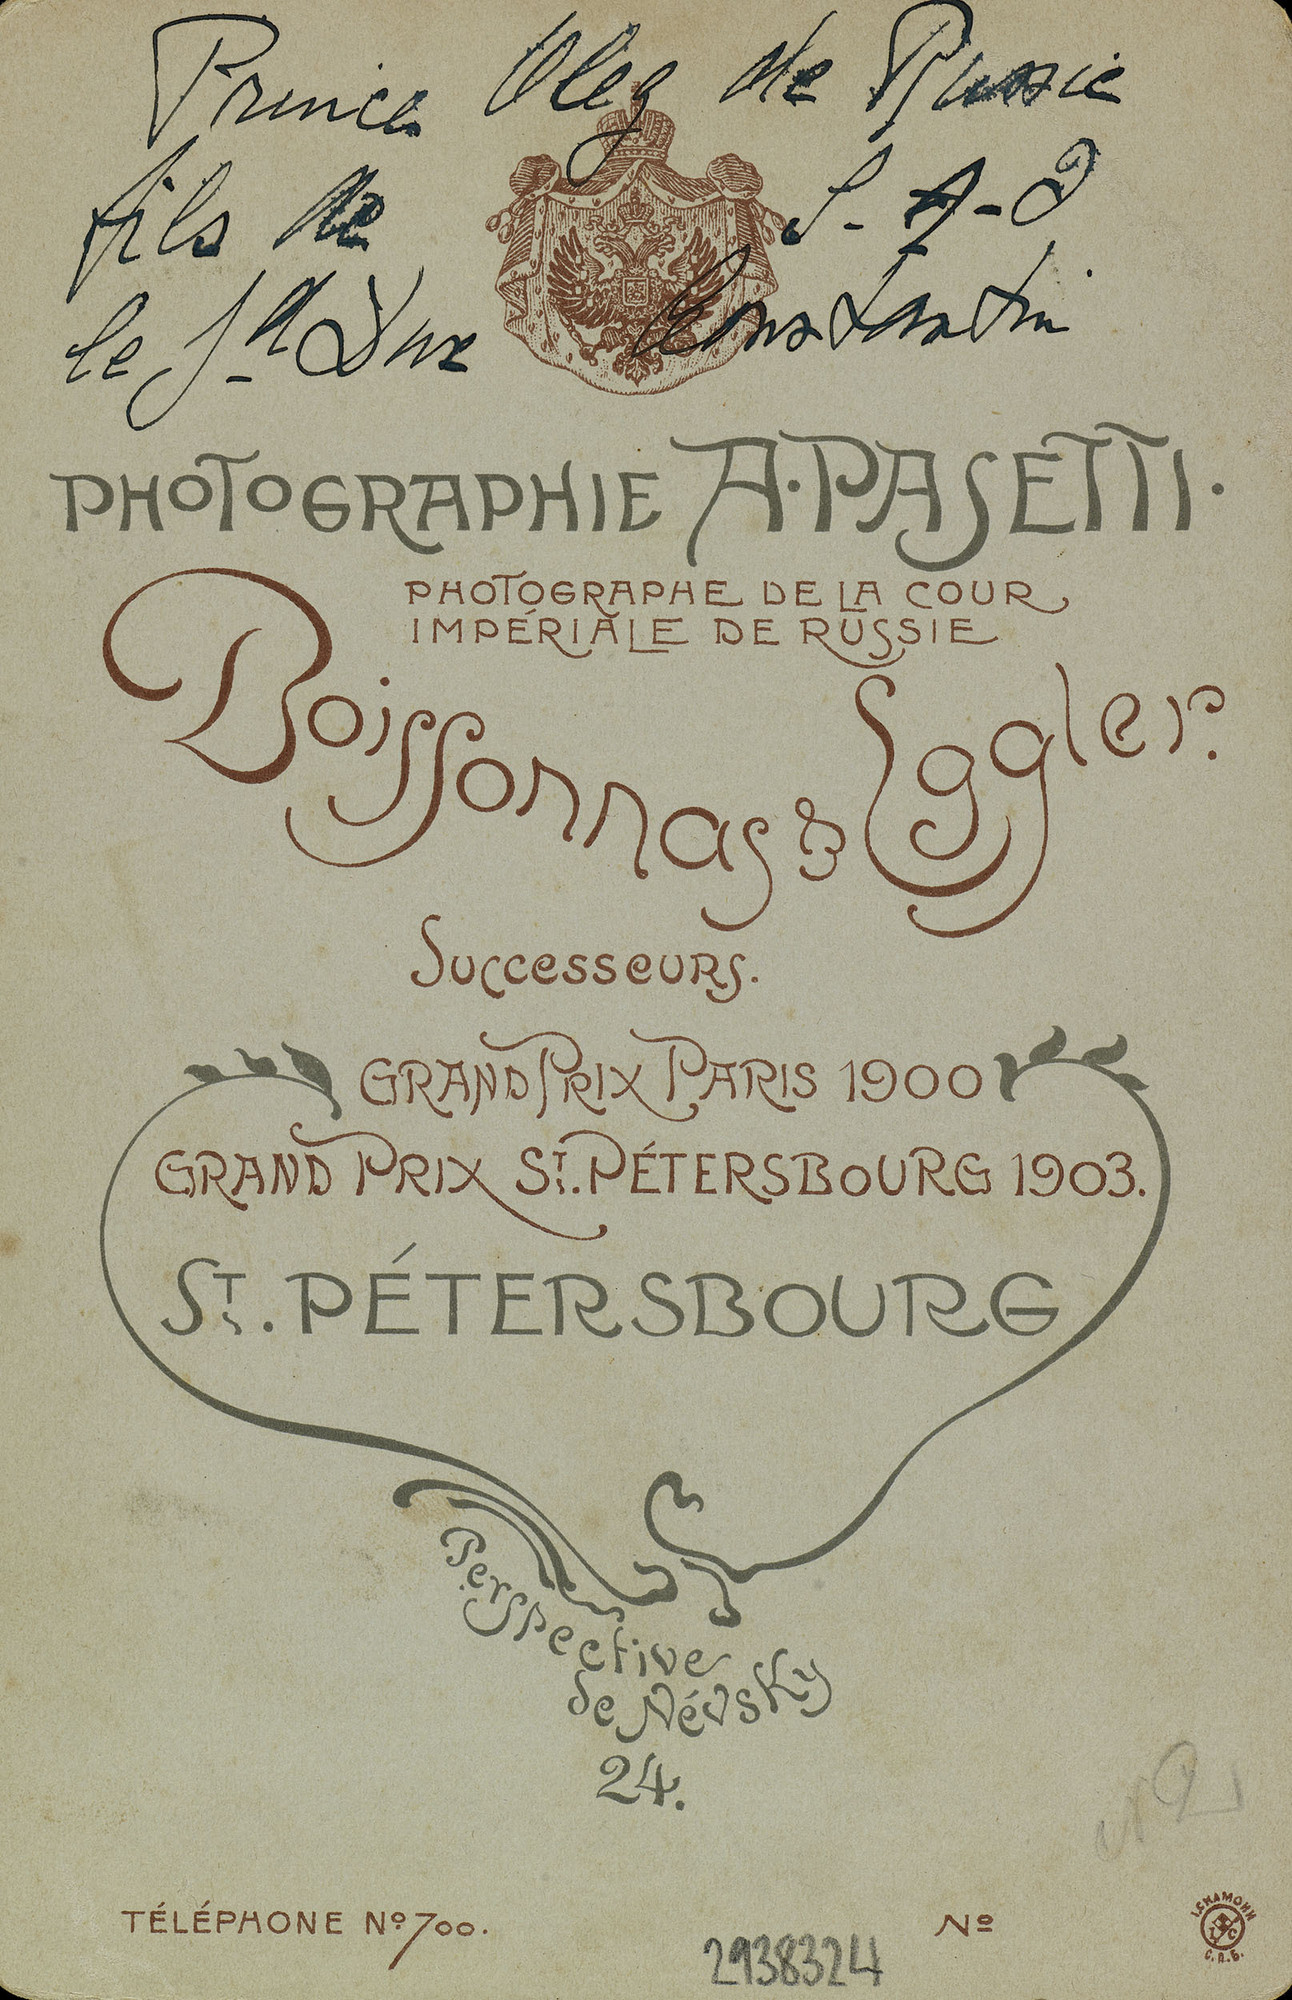 Prince Oleg de Russie
fils de S-A-I
le Gd Duc Constantin
PHOTOGRAPHIE A. PASETTI.
PHOTOGRAPHE DE LA COUR
IMPÉRIALE DE RUSSIE
Boissonnas & Eggler.
Successeurs.
GRAND PRIX PARIS 1900
GRAND PRIX ST. PÉTERSBOURG 1903.
ST. PÉTERSBOURG
Perspective
de Névsky
24.
TÉLÉPHONE No 700.
No
2938324
С.П.Б.